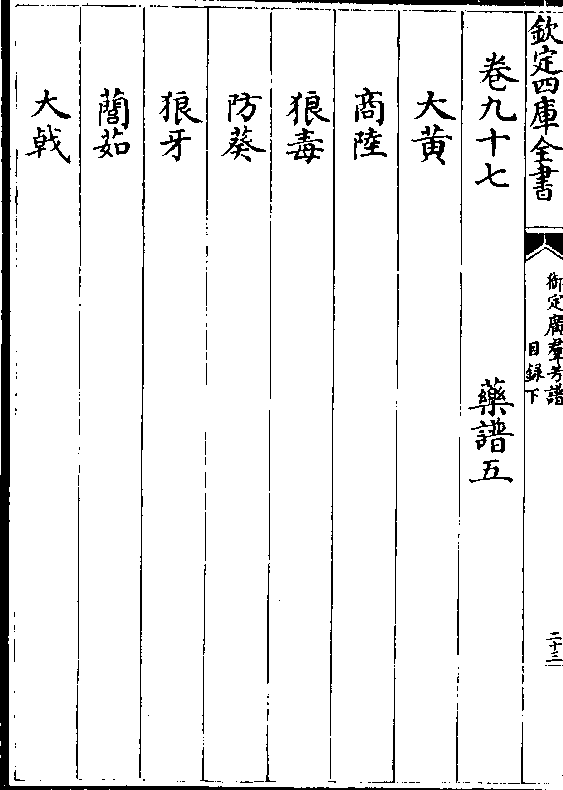 欽定四庫全書
御定廣羣芳譜
目錄下
二十三
卷九十七 藥譜五
大黃
商陸
狼毒
防葵
狼牙
䕡茹
大戟